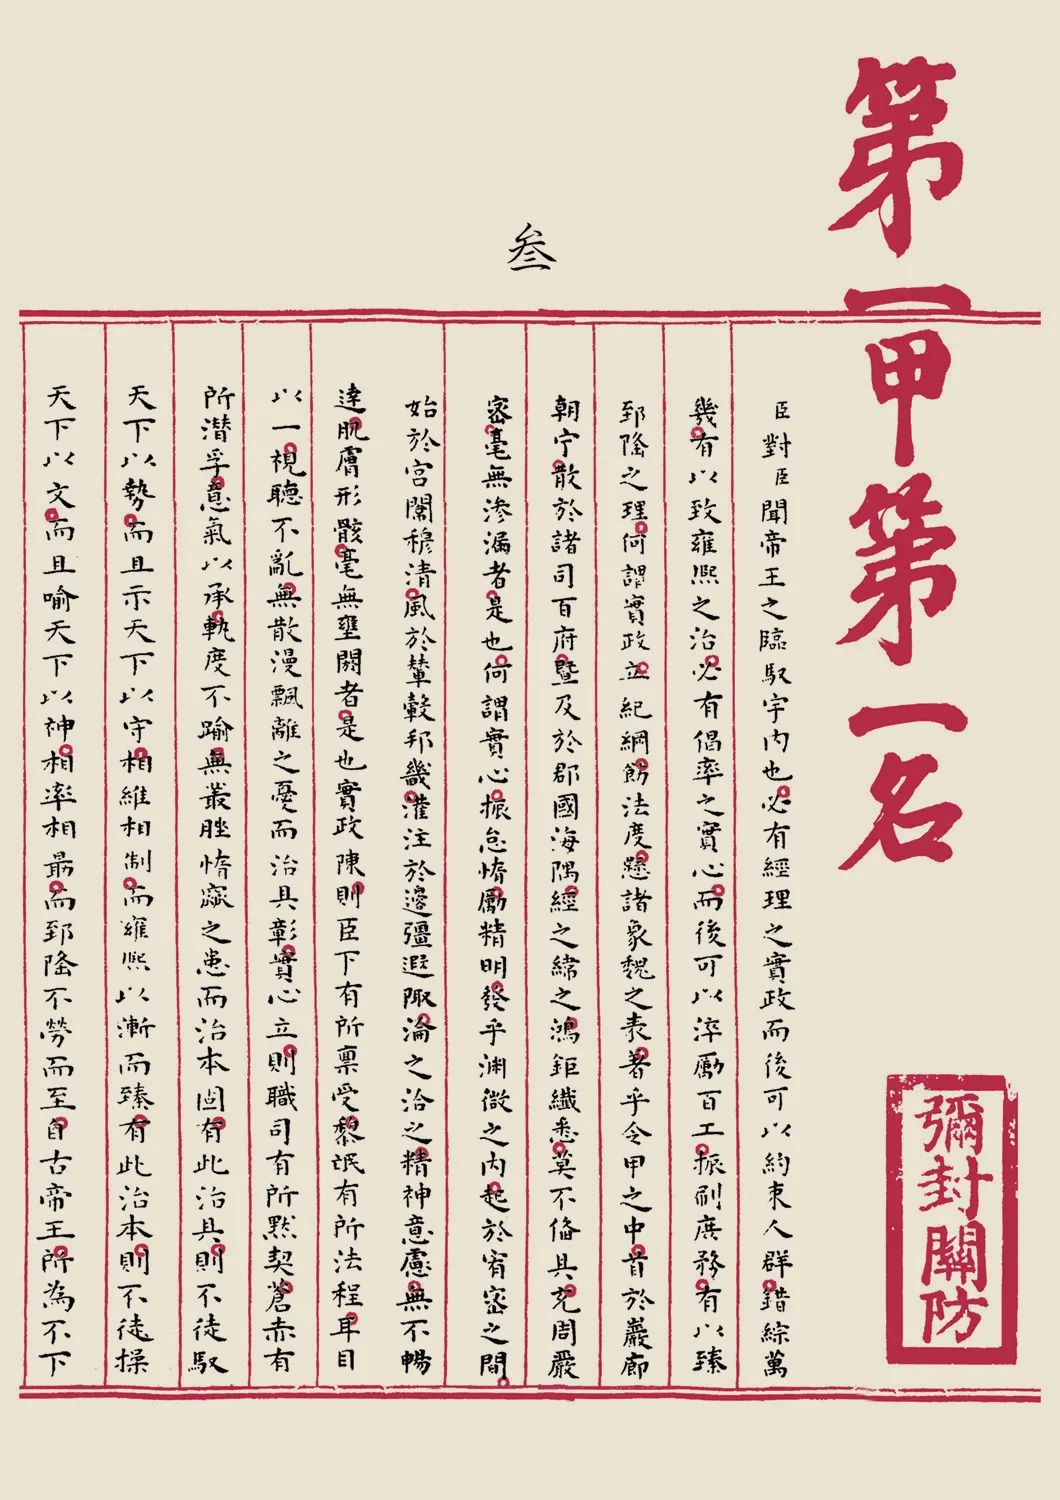 叁
第一甲第一名
彌封關防
臣對臣聞帝王之臨馭宇内也必有經理之實政而後可以約束人群錯綜萬
幾有以致雍熙之治必有倡率之實心而後可以淬勵百工振刷庶務有以臻
郅隆之理何謂實政立紀綱飭法度懸諸象魏之表著乎令甲之中首於巖廊
朝宁散於諸司百府暨及於郡國海隅經之緯之鴻鉅纖悉莫不俻具充周嚴
密毫無滲漏者是也何謂實心振怠惰勵精明發乎渊微之内起於宥密之間
始於宮闈穆清風於輦轂邦畿灌注於邊疆遐陬淪之洽之精神意慮無不暢
達肌膚形骸毫無壅閼者是也實政陳則臣下有所稟受黎氓有所法程耳目
以一視聽不亂無散漫飄離之憂而治具彰實心立則職司有所默契蒼赤有
所潜孚意氣以承軌度不踰無叢脞惰窳之患而治本固有此治具則不徒馭
天下以勢而且示天下以守相維相制而雍熙以漸而臻有此治本則不徒操
天下以文而且喻天下以神相率相最而郅隆不勞而至自古帝王所為不下